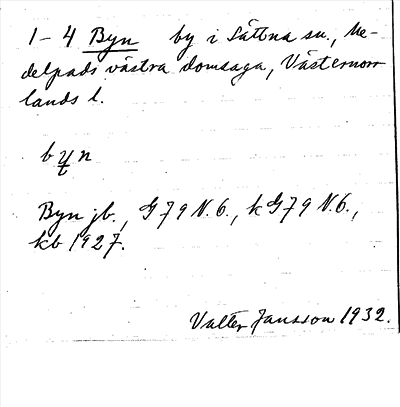 1-4 Byn by i Sättna sn., Me-
delpads västra domsaga, Västernorr
lands l.
byn
Byn jb., G79 N.6., kG79 N.6.,
kb 1927.
Valter Jansson 1932.